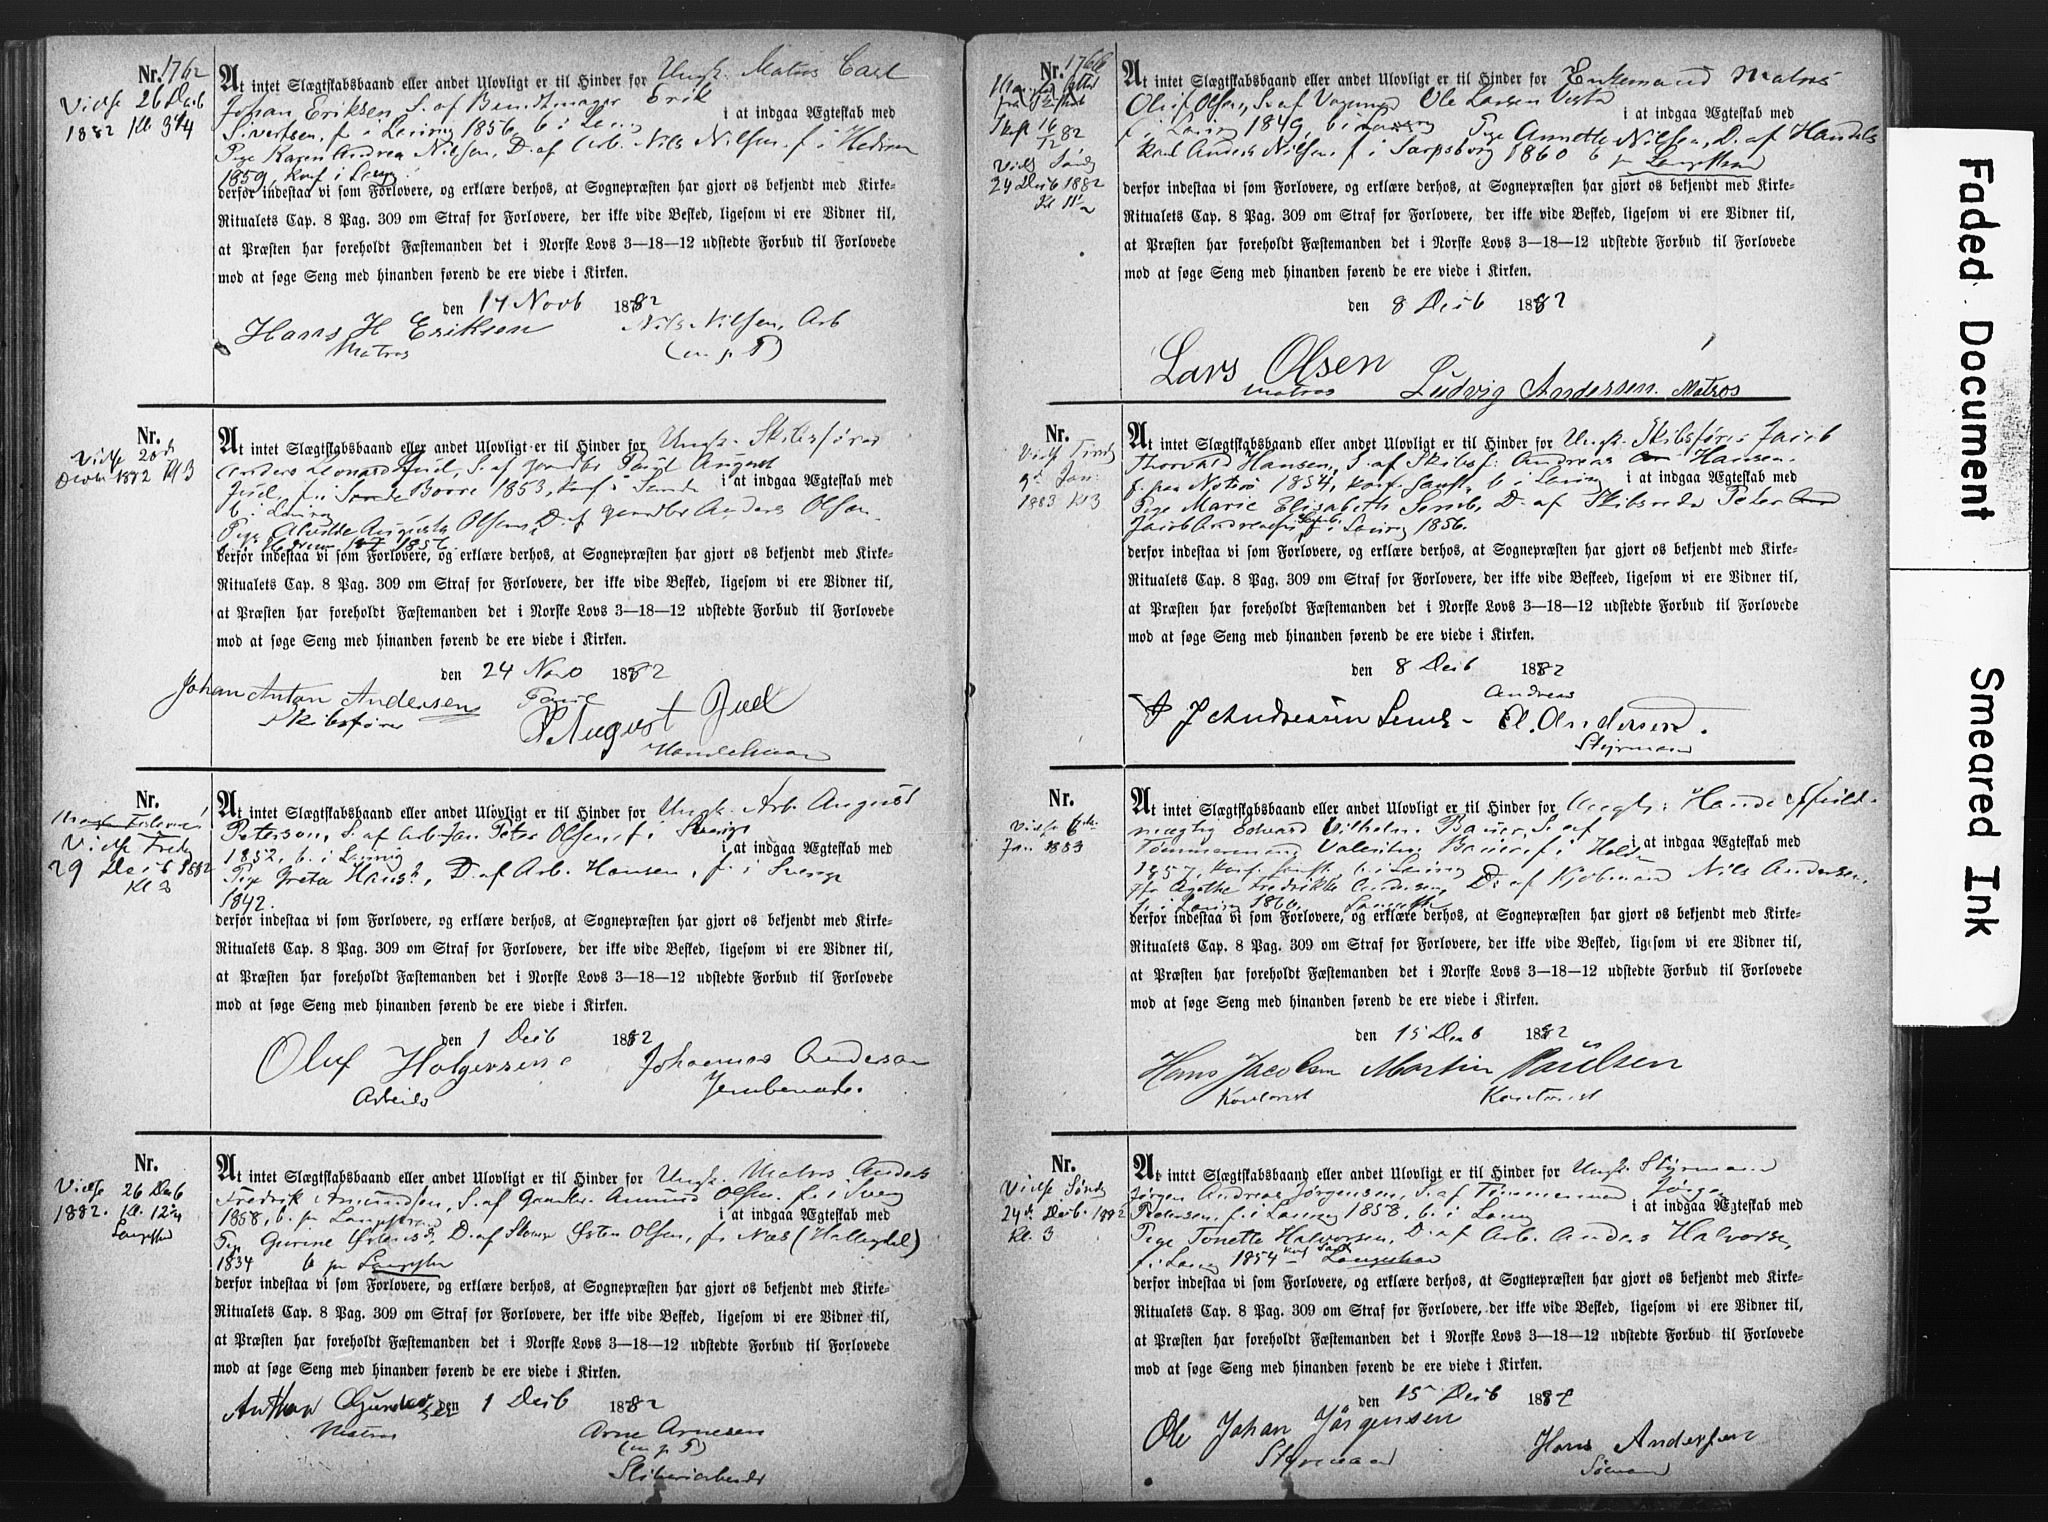 Nr. 1762
Viedse 26 Decb
1882 Kl. 3 3/4
At intet Slægtskabsbaand eller andet Ulovligt er til Hinder for Ungk. Matros Carl
Johan Eriksen S. af Erik
Sivertsen, f. i 1856, b. i i at indgaa Ægteskab med
Pige Karen Andrea Nilsen, D. af Arb. Nils Nilsen, f. i Hedrum
1859, konf. i
derfor indestaa vi som Forlovere, og erklære derhos, at Sognepræsten har gjort os bekjendt med Kirke-
Ritualets Cap. 8 Pag. 309 om Straf for Forlovere, der ikke vide Besked, ligesom vi ere Vidner til,
at Præsten har foreholdt Fæstemanden det i Norske Lovs 3—18—12 udstedte Forbud til Forlovede
mod at søge Seng med hinanden førend de ere viede i Kirken.
den 17 Novb 1882
Hans H Eriksen Nils Nilsen, Arb
Matros (m. p. P)
Nr.
Viedse 20de
1882 Kl 3
At intet Slægtskabsbaand eller andet Ulovligt er til Hinder for Ungk. Skibsfører
Anders Leonard Juel, S. af Paul August
Juel, f. i Borre 1853, konf. i Sande i at indgaa Ægteskab med
b. i
Pige Augusta Olsen, D. af Anders Olsen
Hedrum 1856
derfor indestaa vi som Forlovere, og erklære derhos, at Sognepræsten har gjort os bekjendt med Kirke-
Ritualets Cap. 8 Pag. 309 om Straf for Forlovere, der ikke vide Besked, ligesom vi ere Vidner til,
at Præsten har foreholdt Fæstemanden det i Norske Lovs 3—18—12 udstedte Forbud til Forlovede
mod at søge Seng med hinanden førend de ere viede i Kirken.
den 24 Nov 1882
Johan Anton Andersen Paul
Skibsfører P August Juel
Handelsman
Nr.
Viedse Fred
29 Decb 1882
Kl 3
At intet Slægtskabsbaand eller andet Ulovligt er til Hinder for Ungk. Arb. August
Peterson, S. af Arb. Jan Peter Olsen, f. i Sverige
1852, b. i i at indgaa Ægteskab med
Pige Greta Hansd., D. af Arb. Hansen, f. i Sverige
1842.
derfor indestaa vi som Forlovere, og erklære derhos, at Sognepræsten har gjort os bekjendt med Kirke-
Ritualets Cap. 8 Pag. 309 om Straf for Forlovere, der ikke vide Besked, ligesom vi ere Vidner til,
at Præsten har foreholdt Fæstemanden det i Norske Lovs 3—18—12 udstedte Forbud til Forlovede
mod at søge Seng med hinanden førend de ere viede i Kirken.
den 1 Decb 1882
Oluf Holgersen Johannes Anderson
Arbeids
Nr.
Viedse 26 Decb
1882. Kl. 12 3/4
At intet Slægtskabsbaand eller andet Ulovligt er til Hinder for Ungk. Matros Anders
Fredrik Amundsen, S. af Amund Olsen, f. i
1858, b. pr i at indgaa Ægteskab med
Pige Gurine D. af Østen Olsen, f. Næs (Hallingdal)
1834 b pr
derfor indestaa vi som Forlovere, og erklære derhos, at Sognepræsten har gjort os bekjendt med Kirke-
Ritualets Cap. 8 Pag. 309 om Straf for Forlovere, der ikke vide Besked, ligesom vi ere Vidner til,
at Præsten har foreholdt Fæstemanden det i Norske Lovs 3—18—12 udstedte Forbud til Forlovede
mod at søge Seng med hinanden førend de ere viede i Kirken.
den 1 Decb 1882
Anthon Gundersen Arne Arnesen
Matros (m. p. P)
Nr. 1766
16/12 82
Vieds Sønd
24 Decb 1882
Kl 11 1/2
At intet Slægtskabsbaand eller andet Ulovligt er til Hinder for Enkemand Matros
Oluf Olsen, S. af Ole Larsen
f. i 1849, b. i i at indgaa Ægteskab med
Pige Annette Nilsen, D. af Handels
Karl Anders Nilsen, f. i Sarpsborg 1860 b pr
derfor indestaa vi som Forlovere, og erklære derhos, at Sognepræsten har gjort os bekjendt med Kirke-
Ritualets Cap. 8 Pag. 309 om Straf for Forlovere, der ikke vide Besked, ligesom vi ere Vidner til,
at Præsten har foreholdt Fæstemanden det i Norske Lovs 3—18—12 udstedte Forbud til Forlovede
mod at søge Seng med hinanden førend de ere viede i Kirken.
den 8 Decb 1882
Lars Olsen Ludvig Andersen. Matros
Matros
Nr.
Jan:
1883 Kl 3
At intet Slægtskabsbaand eller andet Ulovligt er til Hinder for Ungk. Skibsfører Jacob
Thorvald Hansen, S. af Skibsf. Andreas Hansen
f. paa Nøterø 1854, i at indgaa Ægteskab med
Pige Marie Elisabeth D. af Skibsreder Peter
Jacob Andreasen f. i 1856.
derfor indestaa vi som Forlovere, og erklære derhos, at Sognepræsten har gjort os bekjendt med Kirke-
Ritualets Cap. 8 Pag. 309 om Straf for Forlovere, der ikke vide Beskeed, ligesom vi ere Vidner til,
at Præsten har foreholdt Fæstemanden det i Norske Lovs 3—18—12 udstedte Forbud til Forlovede
mod at søge Seng med hinanden førend de ere viede i Kirken.
den 8 Decb 1882
Andreas
P J Andreasen A. Andersen.
Styrmand
Nr.
Viedse 6
Jan 1883
At intet Slægtskabsbaand eller andet Ulovligt er til Hinder for Ungk:
Edvard Vilhelm Bauer, S. af
Tømmermand Valentin Bauer f. i i at indgaa Ægteskab med
1857,
Agathe Fredrikke Andersen, D. af Kjøbmand Nils Andersen,
f. i 1860
derfor indestaa vi som Forlovere, og erklære derhos, at Sognepræsten har gjort os bekjendt med Kirke-
Ritualets Cap. 8 Pag. 309 om Straf for Forlovere, der ikke vide Besked, ligesom vi ere Vidner til,
at Præsten har foreholdt Fæstemanden det i Norske Lovs 3—18—12 udstedte Forbud til Forlovede
mod at søge Seng med hinanden førend de ere viede i Kirken.
den 15 Decb 1882
Hans Jacobsen Martin Paulsen
Kontorist Kontorist
Nr.
Viedse Sønd
24de Decb. 1882
Kl. 3
At intet Slægtskabsbaand eller andet Ulovligt er til Hinder for Ungk. Styrmand
Jørgen Andreas Jørgensen, S. af Tømmermand Jørgen
Pedersen, f. i 1858, b. i i at indgaa Ægteskab med
Pige Tonette Halvorsen, D. af Arb. Anders Halvorsen,
f. i 1854
derfor indestaa vi som Forlovere, og erklære derhos, at Sognepræsten har gjort os bekjendt med Kirke-
Ritualets Cap. 8 Pag. 309 om Straf for Forlovere, der ikke vide Besked, ligesom vi ere Vidner til,
at Præsten har foreholdt Fæstemanden det i Norske Lovs 3—18—12 udstedte Forbud til Forlovede
mod at søge Seng med hinanden førend de ere viede i Kirken.
den 15 Decb 1882
Ole Johan Jørgensen Hans Andersen
Styrmand Sømand
Faded Document
Smeared Ink